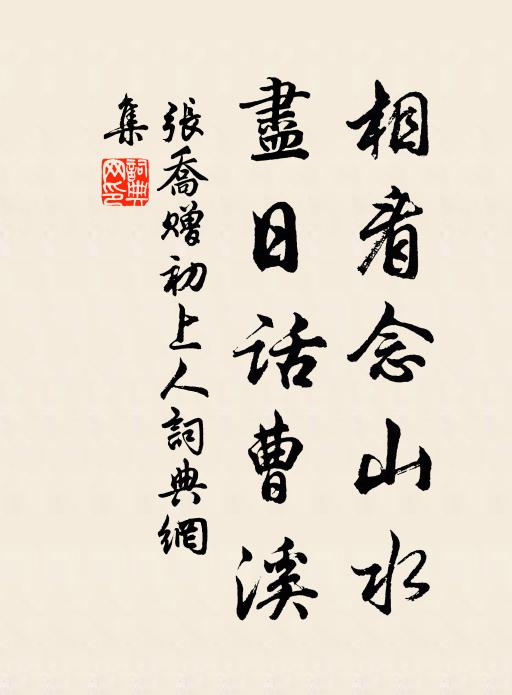 相看念山水
盡日話曹溪
張喬贈初上人詞典網
集
詞典
网印